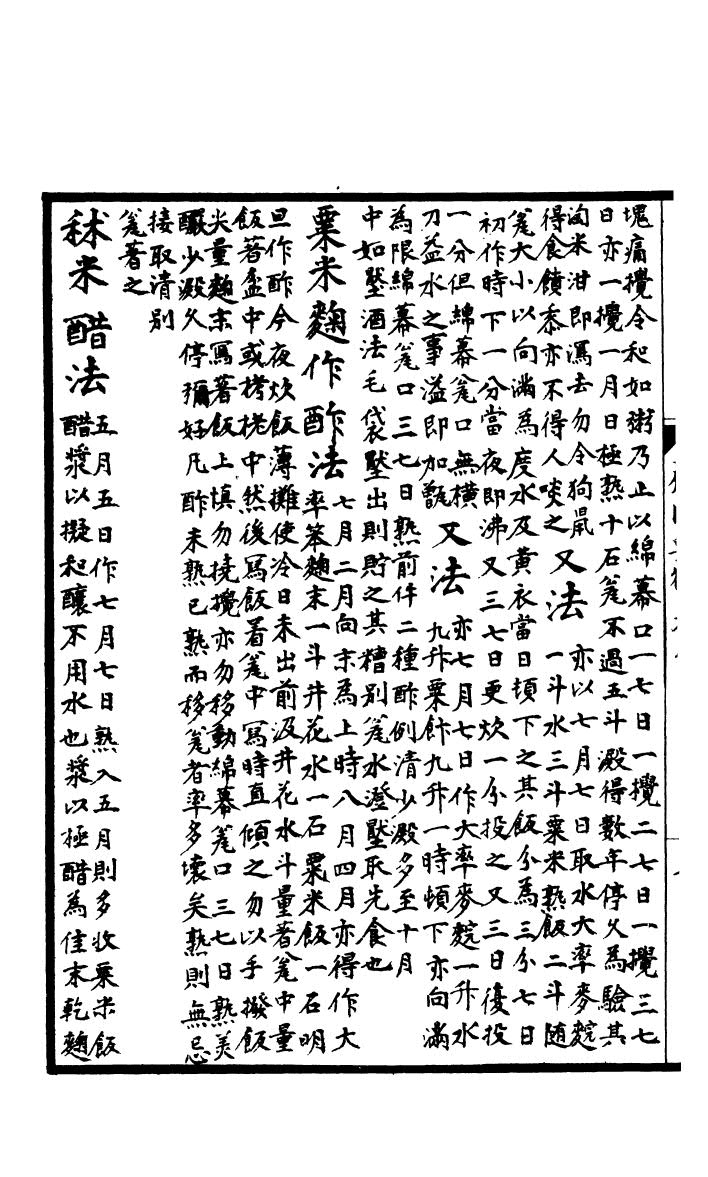 塊痛攪令和如粥乃止以綿幕口一七日一攪二七日一攪三七
日亦一攪一月日極熟十石瓮不過五斗澱得數年停久為驗其
淘米泔即瀉去勿令狗鼠
得食饙黍亦不得人啖之
又法
亦以七月七日取水大率麥䴷
一斗水三斗粟米熟飯二斗随
瓮大小以向滿為度水及黄衣當日頓下之其飯分為三分七日
初作時下一分當夜即沸又三七日更炊一分投之又三日復投
一分但綿幕瓮口無横
刀益水之事溢即加甑
又法
亦七月七日作大率麥䴷一升水
九升粟飰九升一時頓下亦向滿
為限綿幕瓮口三七日熟前件二種酢例清少澱多至十月
中如壓酒法毛袋壓出則貯之其糟別瓮水澄壓取先食也
粟米麴作酢法
七月二月向末為上時八月四月亦得作大
率笨麴末一斗井花水一石粟米飯一石明
旦作酢今夜炊飯薄攤使冷日未出前汲井花水斗量著瓮中量
飯著盆中或栲栳中然後寫飯着瓮中寫時直傾之勿以手撥飯
尖量麴末寫著飯上慎勿撓攪亦勿移動綿幕瓮口三七日熟美
釅少澱久停彌好凡酢未熟已熟而移瓮者率多壞矣熟則無忌
接取清別
瓮著之
秫米醋法
五月五日作七月七日熟入五月則多收粟米飯
醋漿以擬和釀不用水也漿以極醋為佳末乾麴